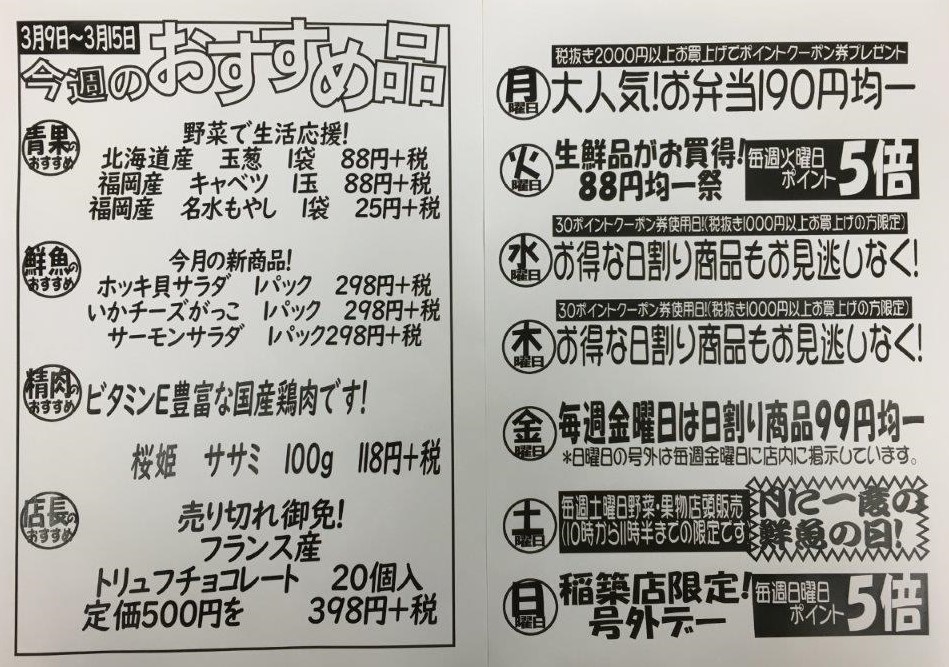 3月9日~3月15日
今週のおすすめ品
青果のおすすめ
野菜で生活応援!
北海道産 玉葱 1袋 88円+税
福岡産 キャベツ 1玉 88円+税
福岡産 名水もやし 1袋 25円+税
鮮魚のおすすめ
今月の新商品!
ホッキ貝サラダ 1パック 298円+税
いかチーズがっこ 1パック 298円+税
サーモンサラダ 1パック298円+税
精肉のおすすめ
ビタミンE豊富な国産鶏肉です!
桜姫 ササミ 100g 118円+税
店長のおすすめ
売り切れ御免!
フランス産
トリュフチョコレート 20個入
定価500円を 398円+税
税抜き2000円以上お買上げでポイントクーポン券プレゼント
月曜日
大人気!お弁当190円均一
火曜日
生鮮品がお買得!
88円均一祭
毎週火曜日
ポイント5倍
30ポイントクーポン券使用日!(税抜き1000円以上お買上げの方限定)
水曜日
お得な日割り商品もお見逃しなく!
30ポイントクーポン券使用日!(税抜き1000円以上お買上げの方限定)
木曜日
お得な日割り商品もお見逃しなく!
金曜日
毎週金曜日は日割り商品99円均一
*日曜日の号外は毎週金曜日に店内に掲示しています。
土曜日
毎週土曜日野菜・果物店頭販売
(10時から11時半までの限定です
月に一度の
鮮魚の日!
日曜日
稲築店限定!
号外デー
毎週日曜日
ポイント5倍